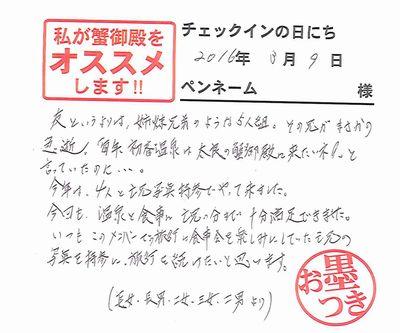 私が蟹御殿を
オススメ
します!!
チェックインの日にち
2016年 3月 9日
ペンネーム 様
友というよりは、姉妹兄弟のような5人組。その兄がまさかの
急逝、毎年 初春温泉は太良の蟹御殿に来たいネ!と
言っていたのに…。
今年は、4人と 写真持参でやって来ました。
今回も、温泉と食事に 分まで十分満足できました。
いつもこのメンバーでの旅行に食事会を楽しみにしていた
写真を持参に、旅行を続けたいと思います。
(長女・長男・二女・三女・二男より)
お墨つき